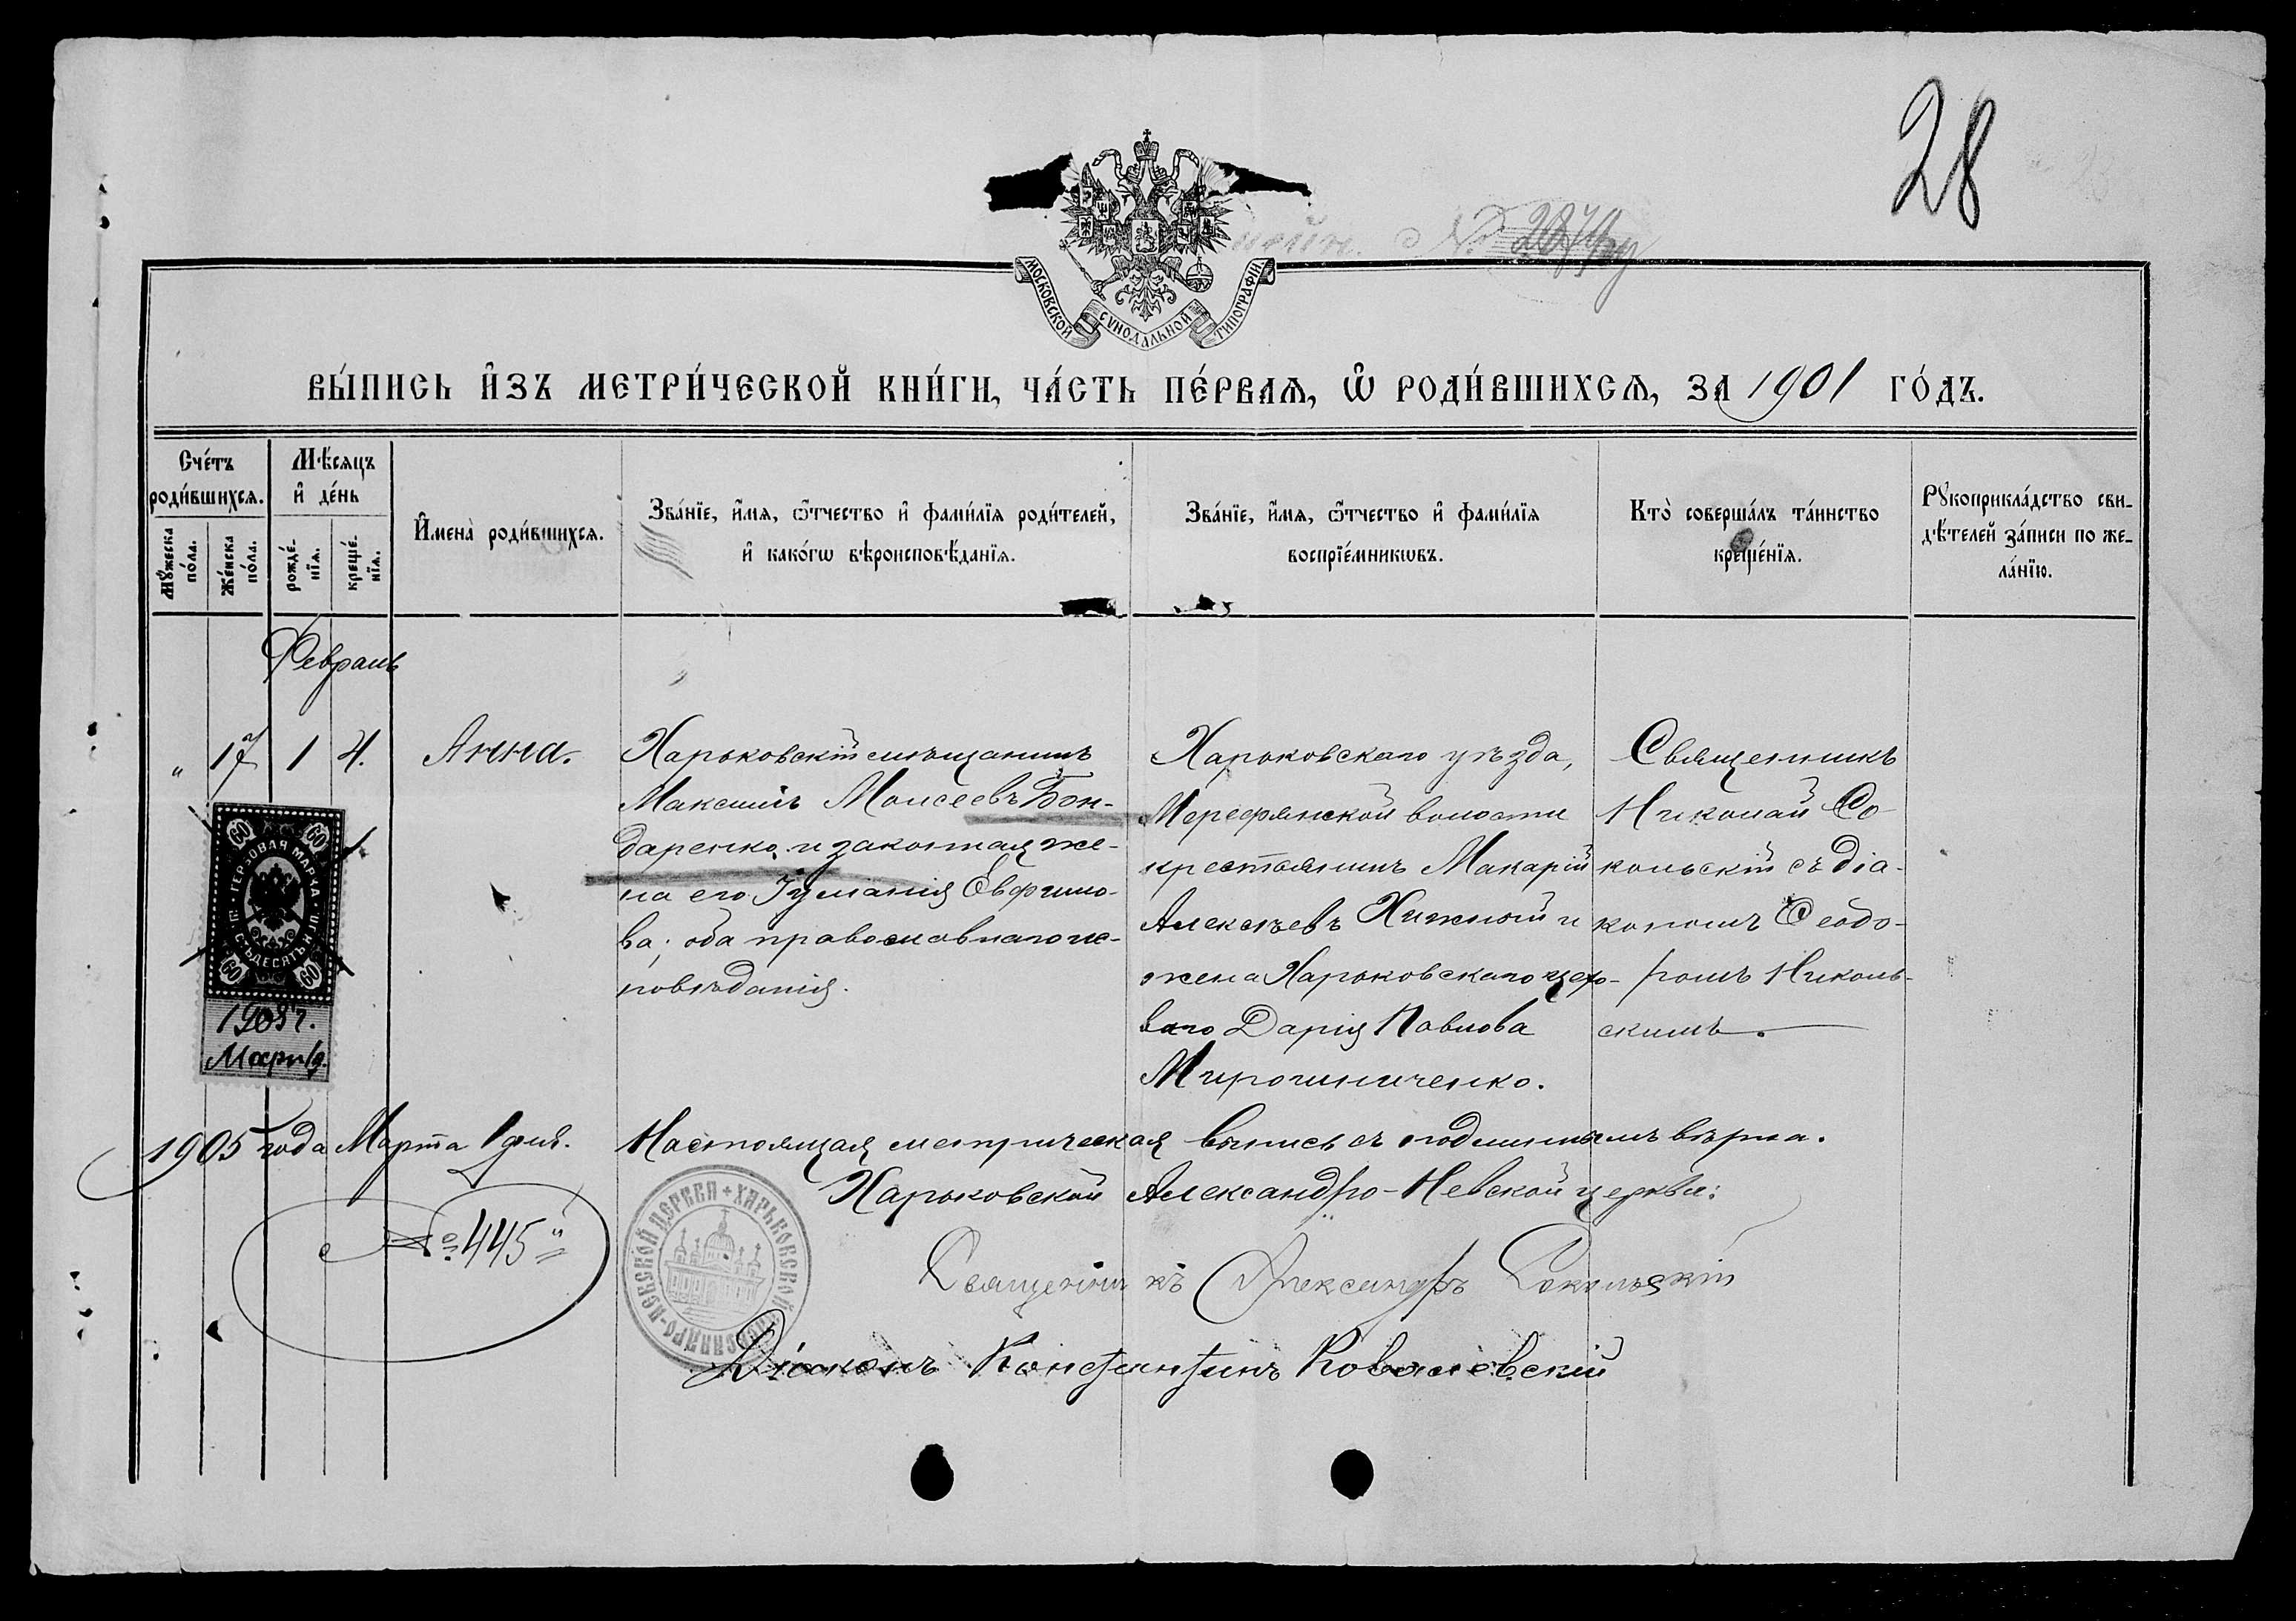 28
МОСКОВСКОЙ СУНОДАЛЬНОЙ ТИПОГРАФІИ.
ВЫ́ПИСЬ И҆ЗЪ МЕТРИ́ЧЕСКОЙ КНИ́ГИ, ЧА́СТЬ ПЕ́РВАѦ, Ѽ РОДИ́ВШИХСѦ, ЗА 1901 ГО́ДЪ.
Сче́тъ роди́вшихсѧ.
Мꙋ́жеска по́ла.
Же́нска по́ла.
Мѣ́сѧцъ и҆ де́нь
рожде́нїѧ.
креще́нїѧ.
И҆мена̀ роди́вшихсѧ.
Зва́нїе, и҆́мѧ, ѻ҆́тчество и҆ фами́лїѧ роди́телей,
и҆ како́гѡ вѣроисповѣ́данїѧ.
Зва́нїе, и҆́мѧ, ѻ҆́тчество и҆ фами́лїѧ
воспрїе́мникѡвъ.
Кто̀ соверша́лъ та́инство
креще́нїѧ.
Рꙋкоприкла́дство сви-
дѣ́телей за́писи по же-
ла́нїю.
Февраль
„ 17 1 4. Анна.
Харьковскій мѣщанинъ
Максимъ Моисеевъ Бон-
даренко и законная же-
на его Іуліанія Евфимо-
ва; оба православнаго ис-
повѣданія.
Харьковскаго уѣзда,
Мерефянской волости
крестьянинъ Макарій
Алексѣевъ Хижній и
жена Харьковскаго цехо-
ваго Дарія Павлова
Мирошниченко.
Священникъ
Николай Со-
кольскій съ діа-
кономъ Ѳеодо-
ромъ Николь-
скимъ.
60 60
ГЕРБОВАЯ МАРКА ШЕСТЬДЕСЯТЪ К.
60 60
1905 г.
Март 1 д.
1905 года Марта 1 дня. Настоящая метрическая выпись съ подлиннымъ вѣрна.
Харьковской Александро-Невской церкви:
№ 445"
ХАРЬКОВСКОЙ АЛЕКСАНДРО-НЕВСКОЙ ЦЕРКВИ +
Священникъ Александръ Сокольскій
Діаконъ Константинъ Ковалевскій